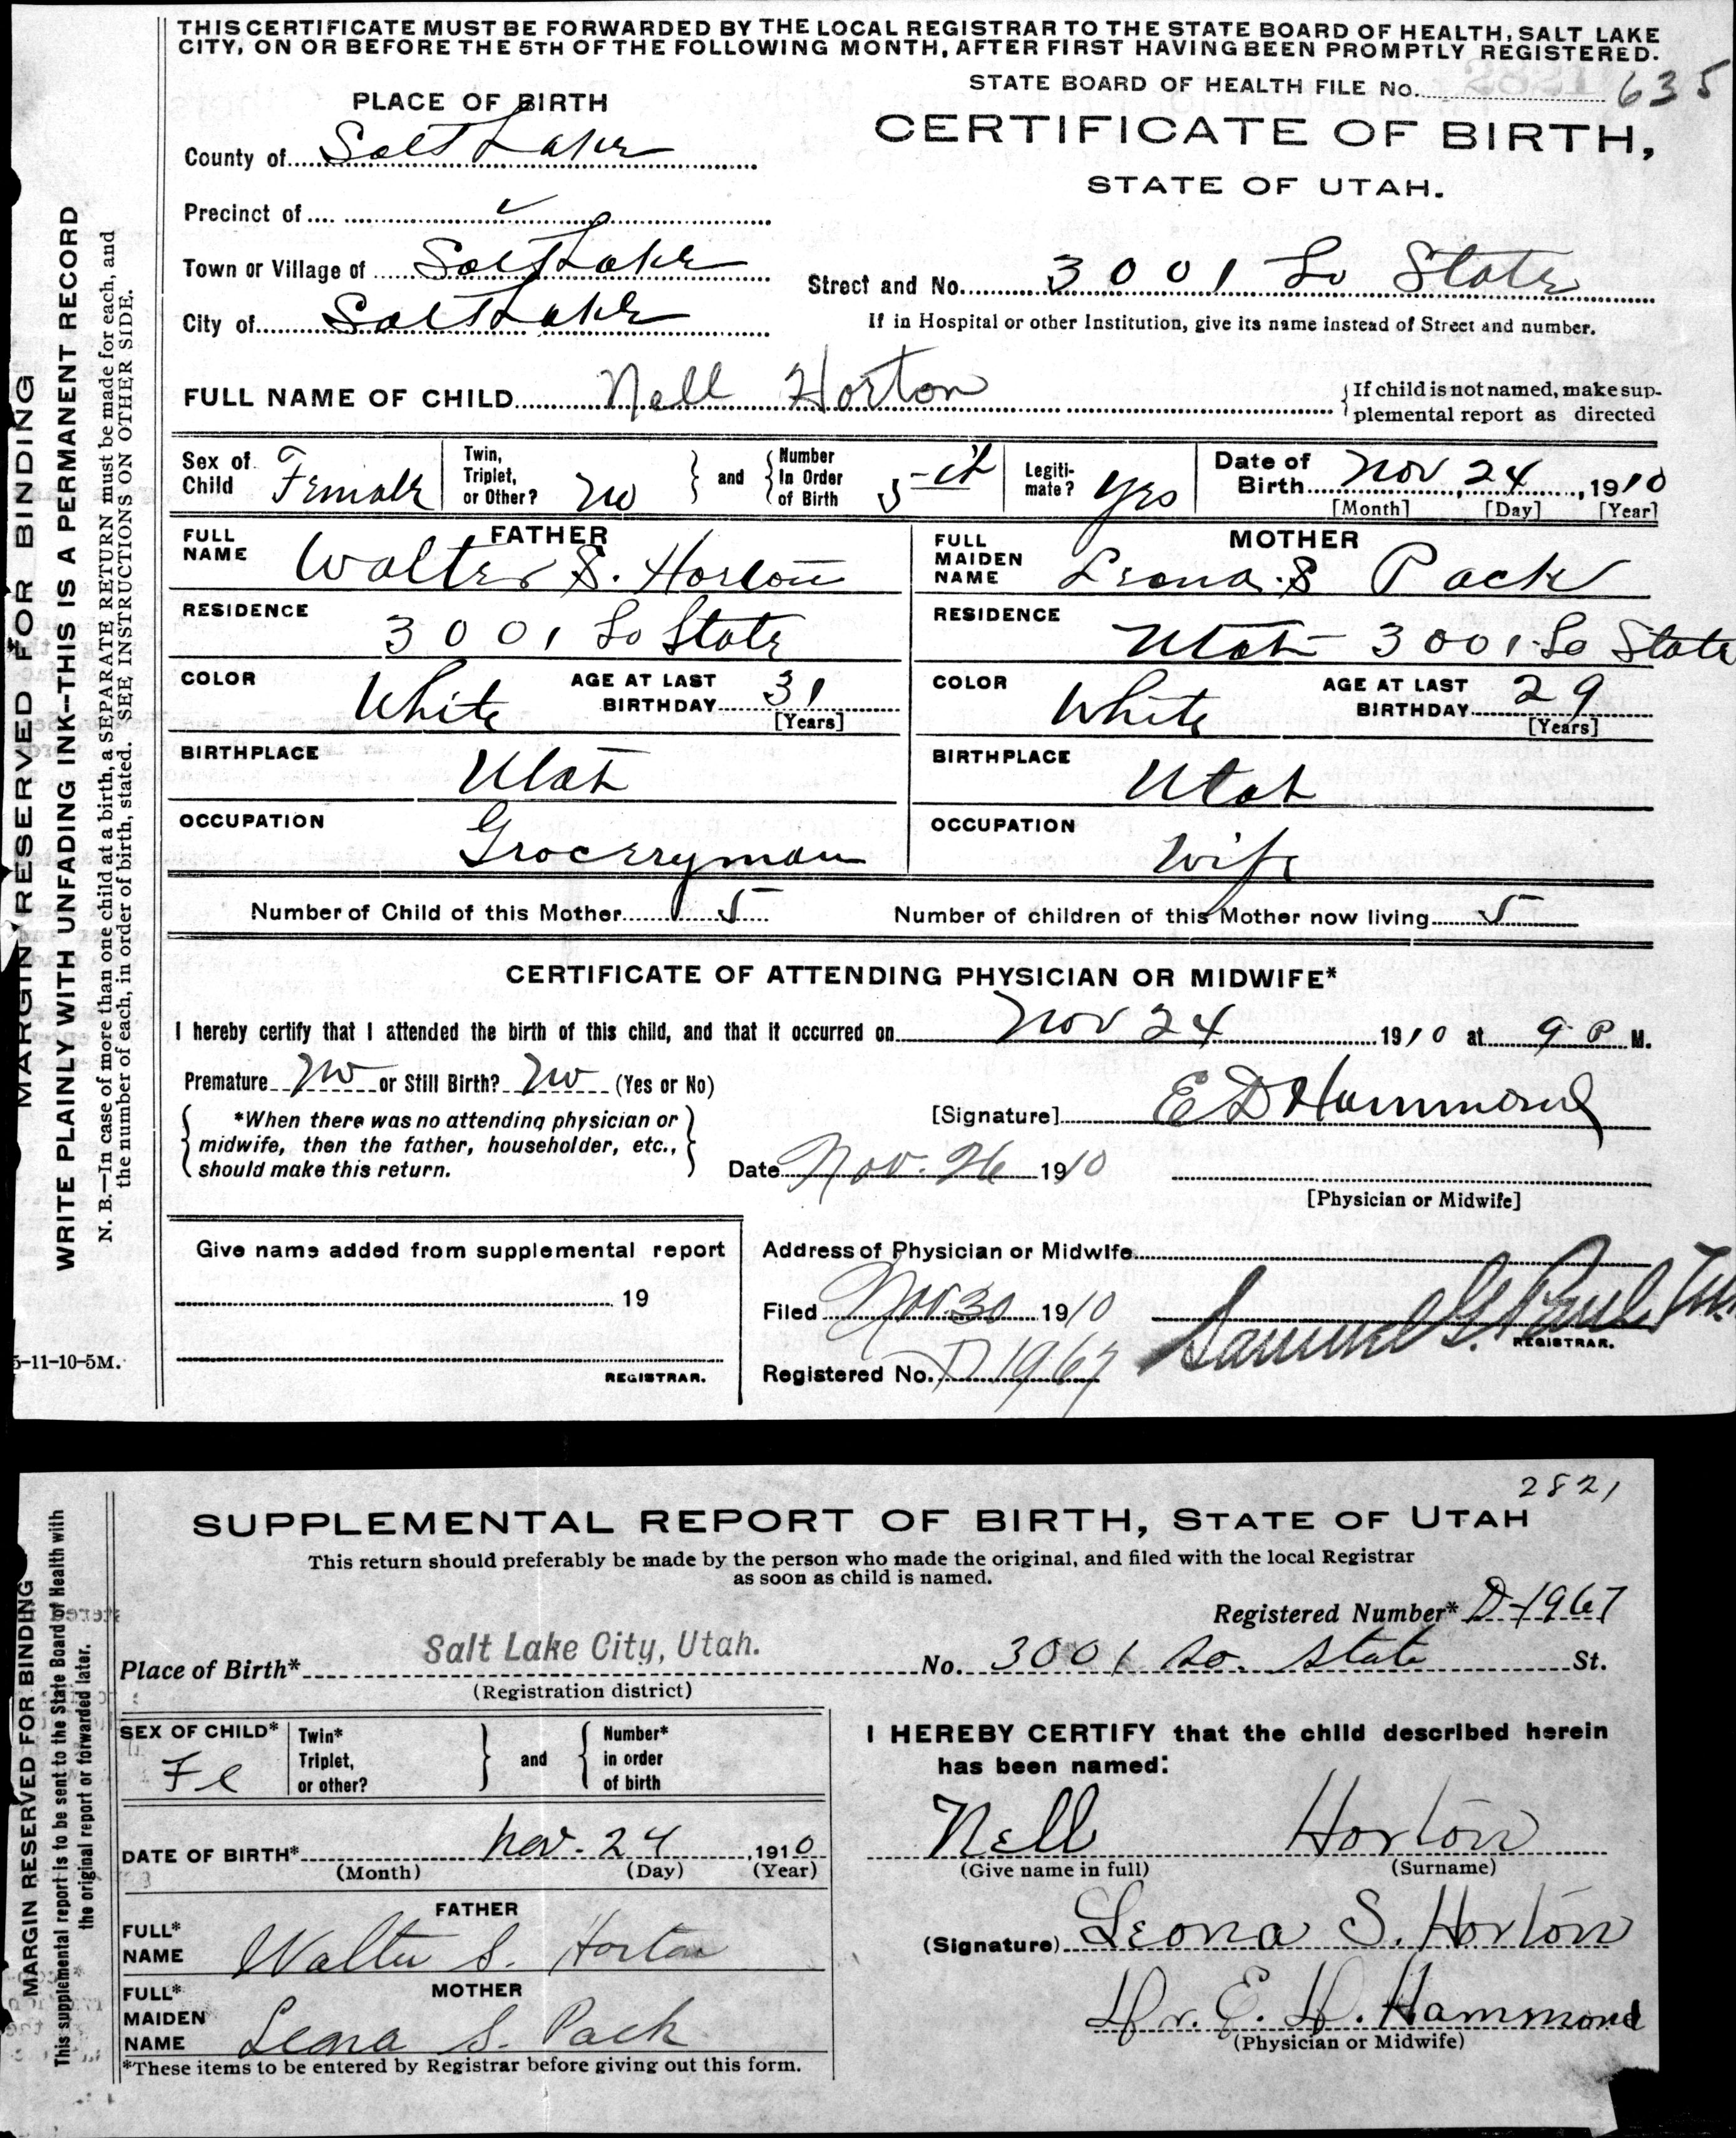 THIS CERTIFICATE MUST BE FORWARDED BY THE LOCAL REGISTRAR TO THE STATE BOARD OF HEALTH, SALT LAKE
CITY, ON OR BEFORE THE 5TH OF THE FOLLOWING MONTH, AFTER FIRST HAVING BEEN PROMPTLY REGISTERED.
STATE BOARD OF HEALTH FILE No. 635
PLACE OF BIRTH
CERTIFICATE OF BIRTH,
STATE OF UTAH.
County of Salt Lake
Precinct of
Town or Village of Salt Lake
Street and No. 3001 So State
City of Salt Lake
If in Hospital or other Institution, give its name instead of Street and number.
FULL NAME OF CHILD Nell Horton
If child is not named, make sup-
plemental report as directed
Sex of Child Female
Twin, Triplet, or Other? No
and Number in Order of Birth 5th
Legiti-mate? Yes
Date of Birth Nov 24, 1910
[Month] [Day] [Year]
FATHER
FULL NAME Walter S. Horton
MOTHER
FULL MAIDEN NAME Leona S Pack
RESIDENCE 3001 So State
RESIDENCE Utah 3001 So State
COLOR White AGE AT LAST BIRTHDAY 31 [Years]
COLOR White AGE AT LAST BIRTHDAY 29 [Years]
BIRTHPLACE Utah
BIRTHPLACE Utah
OCCUPATION Groceryman
OCCUPATION Wife
Number of Child of this Mother 5
Number of children of this Mother now living 5
CERTIFICATE OF ATTENDING PHYSICIAN OR MIDWIFE*
I hereby certify that I attended the birth of this child, and that it occurred on Nov 24 1910 at 9 P M.
Premature No or Still Birth? No (Yes or No)
*When there was no attending physician or
midwife, then the father, householder, etc.,
should make this return.
[Signature] E D Hammond
Date Nov. 26 1910
[Physician or Midwife]
Give name added from supplemental report
19
REGISTRAR.
Address of Physician or Midwife
Filed Nov. 30 1910
Samuel G. Paul
REGISTRAR.
Registered No. D 1967
5-11-10-5M.
MARGIN RESERVED FOR BINDING
WRITE PLAINLY WITH UNFADING INK--THIS IS A PERMANENT RECORD
N. B.—In case of more than one child at a birth, a SEPARATE RETURN must be made for each, and
the number of each, in order of birth, stated. SEE INSTRUCTIONS ON OTHER SIDE.
2821
SUPPLEMENTAL REPORT OF BIRTH, STATE OF UTAH
This return should preferably be made by the person who made the original, and filed with the local Registrar
as soon as child is named.
Registered Number* D-1967
Place of Birth* Salt Lake City, Utah. No. 3001 So. State St.
(Registration district)
SEX OF CHILD* Fe
Twin* Triplet, or other?
and Number* in order of birth
I HEREBY CERTIFY that the child described herein
has been named:
Nell Horton
(Give name in full) (Surname)
DATE OF BIRTH* Nov. 24, 1910
(Month) (Day) (Year)
FATHER
FULL* NAME Walter S. Horton
(Signature) Leona S. Horton
MOTHER
FULL* MAIDEN NAME Leona S. Pack
Dr. E. D. Hammond
(Physician or Midwife)
*These items to be entered by Registrar before giving out this form.
MARGIN RESERVED FOR BINDING
This supplemental report is to be sent to the State Board of Health with
the original report or forwarded later.